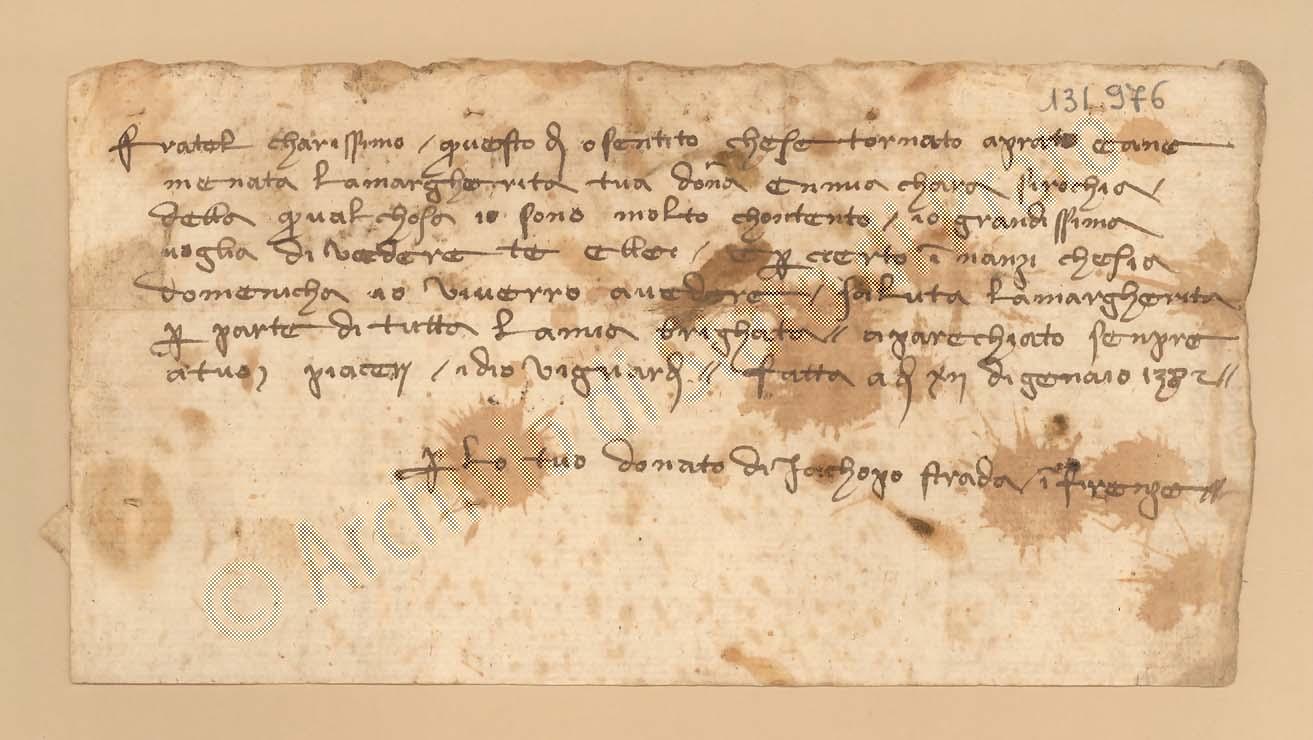 131.976
Fratel charissimo / questo dì o sentito chese tornato a prato e ane
menata lamargherita tua dōna e nmia chara sirochia /
della qual chosa io sono molto chontento / io grandissima
voglia di vedere te e llei / e p cierto ī nanzi chesia
domenicha io viverro avedere / saluta lamargherita
p parte di tutta lamia brighata // aparechiato senpre
atuoj piaceri / idio viguardi // fatta adì xij digenaio 1382 //
p lo tuo donato di Jachopo strada ī firenze //
© Archivio di Stato di Prato